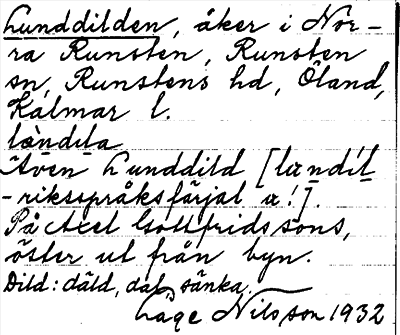 Lunddilden, åker i Nor-
ra Runsten, Runsten
sn, Runstens hd, Öland,
Kalmar l.
Även Lunddild [
-riksspråksfärjat a!].
På Axel Gottfridssons,
öster ut från byn.
Dild: däld, dal, sänka.
Lage Nilsson 1932